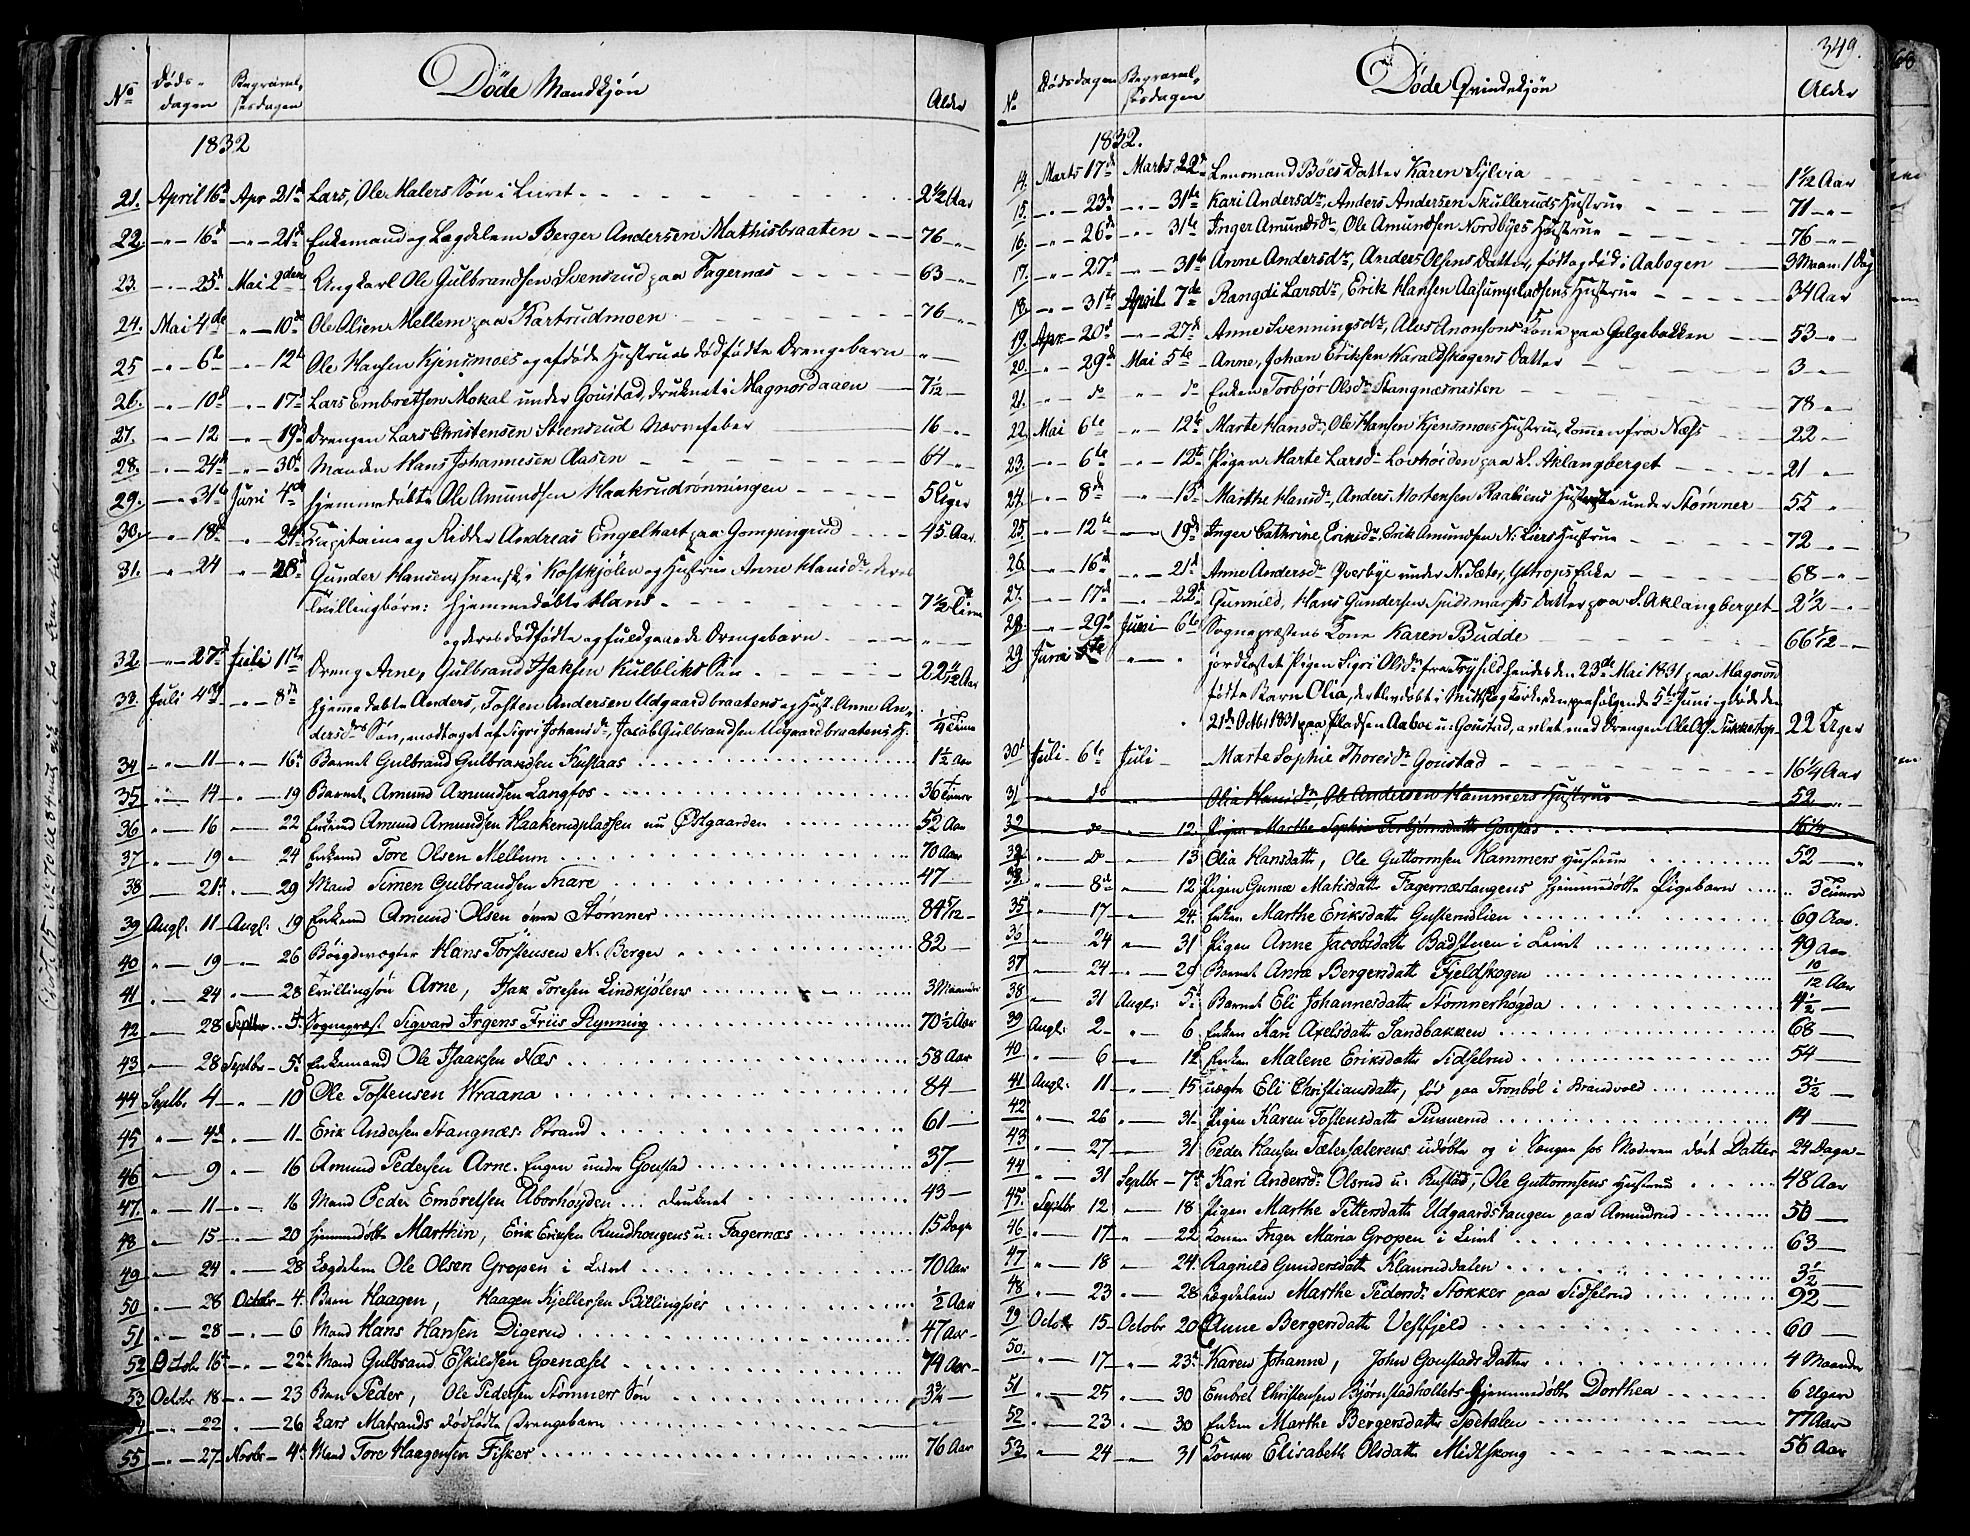 No
Døds-
dagen
Begravel-
sesdagen
Døde Mandkjön
Alder
1832
21. April 16d Apr 21d Lars, Ole Malers Søn i Lieret 2½ Aar
22. -"- 16d -"- 21d Enkemand og Lægdelem Berger Andersen Mathisbraaten 76 -"-
23. -"- 25d Mai 2den Ungkarl Ole Gulbrandsen Svensrud paa Fagernæs 63 -"-
24. Mai 4de -"- 10de Ole Olsen Mellem paa Kartrudmoen 76 -"-
25 -"- 6te -"- 12te Ole Hansen Kjensmoes og afdøde Hustrues dødfødte Drengebarn -"-
26. -"- 10d -"- 17d Lars Embretsen Mokal under Goustad, druknet i Magnordaaen 7½
27. -"- 12 -"- 19d Drengen Lars Christensen Steensrud Nervefeber 16 -"-
28. -"- 24d -"- 30d Manden Hans Johannesen Aasen 64 -"-
29. -"- 31te Juni 4de hjemmedøbte Ole Amundsen Haakrudrønningen 5 Uger
30. -"- 18d -"- 24d Capitaine og Ridder Andreas Engelhart paa Gompungrud 45 Aar
31. -"- 24 -"- 28d Gunder Hansen, Svensk, i Kostkjölen og Hustrue Anne Hansdr, deres
Tvillingbørn: hjemmedøbte Hans 7½ Time
og deres dødfødte Drengebarn -"-
32 -"- 27d Juli 11te Dreng Arne, Gulbrand Isaksen Kulbliks Søn 22
33. Juli 4de -"- 8de hjemmedøbte Anders, Tosten Andersen Udgaardbraatens og Hust. Anne An-
dersdr Søn, modtaget af Sigri Johansdr, Jacob Gulbrandsen Udgaardbraatens H. ¼ Time
34 -"- 11 -"- 16d Barnet Gulbrand Gulbrandsen Kustaas 1½ Aar
35 -"- 14 -"- 19 Barnet Amund Amundsen Langfos 36 Timer
36 -"- 16 -"- 22 Enkemd Amund Amundsen Haakerudplassen nu Östgaarden 52 Aar
37 -"- 19 -"- 24 Enkemd Tore Olsen Mellum 70 Aar
38 -"- 21d -"- 29 Mand Simen Gulbrandsen Snare 47 -
39 Augl: 11 Augl: 19 Enkemd Amund Olsen øvre Stømner 84
40 -"- 19 -"- 26 Bøigdevægter Hans Torstensen N: Berger 82 -
41 -"- 24 -"- 28 Tvillingsön Arne, Isak Toresen Lindkjölens 3 Maaneder
42 -"- 28 Septbr 5. Sognepræst Sigvard Irgens Friis Rynning 70½ Aar
43 -"- 28 Septbr 5d Enkemand Ole Isaksen Næs 58 Aar
44 Septbr 4 -"- 10 Ole Tostensen Wraana 84 -
45 -"- 4d -"- 11. Erik Andersen Stangnæs Strand 61 -
46 -"- 9 -"- 16 Amund Pedersen Arne-Engen under Goustad 37 -
47. -"- 11 -"- 16 Mand Peder Embretsen Aborhøgden ... druknet 43 -
48 -"- 15 -"- 20 hjemmedøbt Marthin, Erik Eriksen Rundhougens u: Fagernæs 15 Dage
49 -"- 24 -"- 28 Lægdelem Ole Olsen Gropen i Lieret 70 Aar
50 -"- 28 Octobr 4. Barn Haagen, Haagen Kjellersen Billingsöes ½ Aar
51 -"- 28 -"- 6 Mand Hans Hansen Digerud 47 Aar
52 Octobr 16d -"- 22d Mand Gulbrand Eskildsen Goenæset 74 Aar
53 Octobr 18 -"- 23 Barn Peder, Ole Pedersen Stømners Søn 3¾ -
54 -"- 22 -"- 26 Lars Matrands dødfødte Drengebarn -"-
55 -"- 27 Novbr 4d Mand Tore Haagensen Fisker 76 Aar
349.
No
Dødsdagen
Begravel-
sesdagen
Døde Qvindekjön
Alder
1832.
14. Marts 17d Marts 22d Lensmand Böes Datter Karen Sylvia 1½ Aar
15. -"- 23d -"- 31te Kari Andersdr, Anders Andersen Skulleruds Hustrue 71 -"-
16. -"- 26d -"- 31te Inger Amundsdr, Ole Amundsen Nordbyes Hustrue 76 -"-
17. -"- 27d -"- 31te Anne Andersdr, Anders Olsens Datter, født og død i Aabogen 3 Maan: 1 Dag
18. -"- 31te April 7de Rangdi Larsdr, Erik Hansen Aasumpladsens Hustrue 34 Aar
19. Apr 20d -"- 27d Anne Svenningsdr, Alus Anonsons Kone paa Galgebakken 53 -"-
20. -"- 29d Mai 5te Anne, Johan Eriksen Karaldskogens Datter 3 -"-
21. -"- do -"- do Enken Torbjør Olsdr Stangnæsnæsten 78 -"-
22. Mai 6te -"- 12te Marte Hansdr, Ole Hansen Kjensmoes Hustrue, kommen fra Næss 22 -"-
23. -"- 6te -"- 12te Pigen Marte Larsdr Lovhöiden paa S. Aklangberget 21 -"-
24. -"- 8d -"- 13d Marthe Hansdr, Anders Mortensen Raabiens Hustrue under Stømner 55 -"-
25. -"- 12te -"- 19d Inger Cathrine Eriksdr, Erik Amundsen N: Liers Hustrue 72 -"-
26. -"- 16d -"- 21d Anne Andersdr Qverbye under N. Sæter, Gstrops Enke 68 -"-
27. -"- 17d -"- 22d Gunnild, Hans Gundersen Spidsmarks Datter paa S. Aklangberget 2½ -"-
28. -"- 29d Juni 6te Sognepræstens Kone Karen Budde 66
29 Juni 5te -"- jordkastet Pigen Sigri Olsdr fra Trysild hendes den 23de Mai 1831 paa Magnor
fødte Barn Olia, der blev døbt i Midtskog Kirke den paafølgende 5te Juni og døde den
21d Octb. 1831 paa Pladsen Aaboe u: Goustad, avlet med Drengen Ole Olsen 22 Uger
30t Juli 6te Juli - Marte Sophie Thoresdr Goustad 16¼ Aar
31 -"- do Olia Hansdr, Ole Andersen Hammers Hustrue 52 -"-
32 -"- do -"- 12 Pigen Marthe Sophie Torbjørnsdatter Goustad 16¼
32 -"- do -"- 13 Olia Hansdatter, Ole Guttormsen Hammers Hustrue 52 -"-
33 -"- 8de -"- 12 Pigen Gunne Matisdatter Fagernæstangens hjemmedøbte Pigebarn 3 Timer
35 -"- 17 -"- 24 Enken Marthe Eriksdatter Gustendlien 69 Aar
36 -"- 24 -"- 31 Pigen Anne Jacobsdatter Badstuen i Lieret 49 Aar
37 -"- 24 -"- 29 Barnet Anne Bergersdatt Fjeldskogen 10/12 Aar
38 -"- 31 Augl: 5d Barnet Eli Johannesdatter Stømnerhøgda 4½ -
39 Augl: 2 -"- 6 Enken Kari Axelsdatter Sandbakken 68 -
40 -"- 6 -"- 12 Enken Malene Eriksdatter Sidselrud 54 -
41 Augl: 11 -"- 15 uægte Eli Christiansdatter, før paa Tronböl i Brandvold 3½ -
42 -"- 26 -"- 31 Pigen Karen Tostensdatter Pinnerud 14 -
43 -"- 27 -"- 31 Peder Hansen Sætersæterens udøbte og i Sengen hos Moderen død Datter 24 Dage
44 -"- 31 Septbr 7d Kari Andersdr Olsrud u: Rustad, Ole Guttormsens Hustrue 48 Aar
45. Septbr 12 -"- 18 Pigen Marthe Pettersdatter Udgaardshaugen paa Amundrud 50 -
46 -"- 17 -"- 22 Konen Inger Maria Gropen i Lieret 63 -
47 -"- 18 -"- 24 Ragnild Gundersdatter Klanruddalen 3½ -
48 -"- 23 -"- 28 Lægdelem Marthe Pedersdr Stokker paa Sidselrud 92 -
49 Octob 15 Octobr 20 Anne Bergersdatter Vestfjeld 60 -
50. -"- 17 -"- 23d Karen Johanne, John Goustads Datter 4 Maaneder
51 -"- 25 -"- 30 Embret Christensen Bjørnstadholtets hjemmedøbte Dorthea 6 Uger
52 -"- 23 -"- 30 Enken Marthe Bergersdatter Spetalen 77 Aar
53 -"- 24 -"- 31 Konen Elisabeth Olsdatter Midtskoug 56 Aar